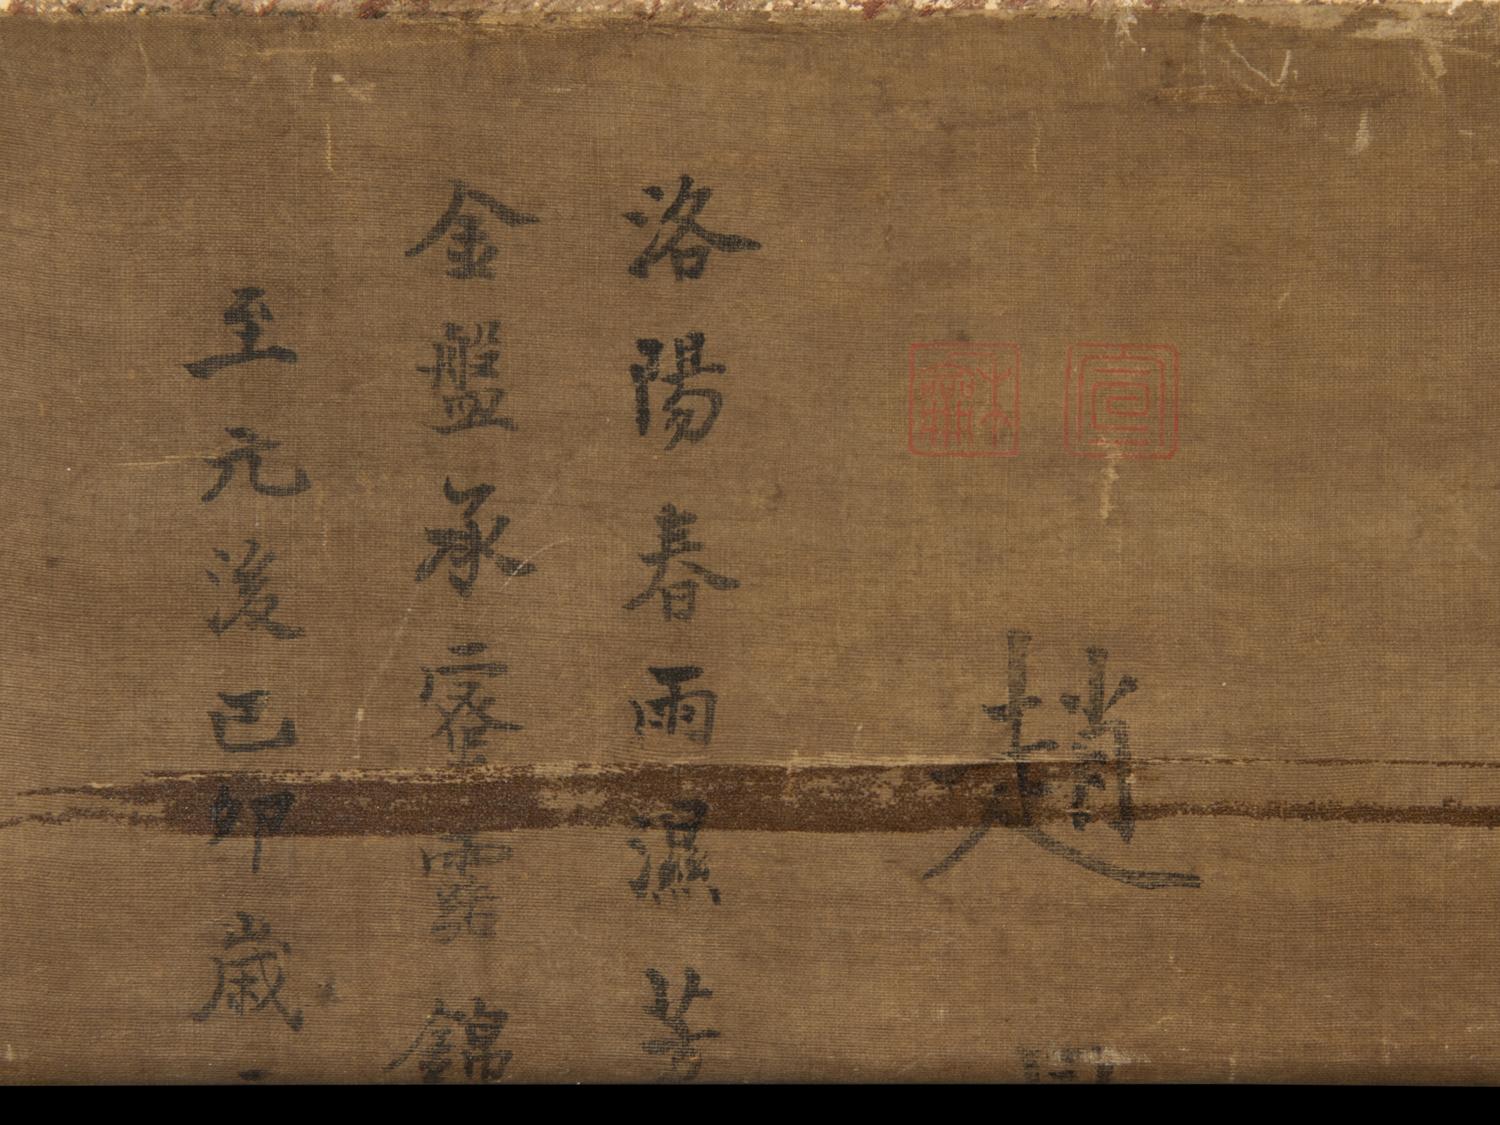 趙
洛陽春雨濕芳
金盤承密露錦
至元後己卯歲